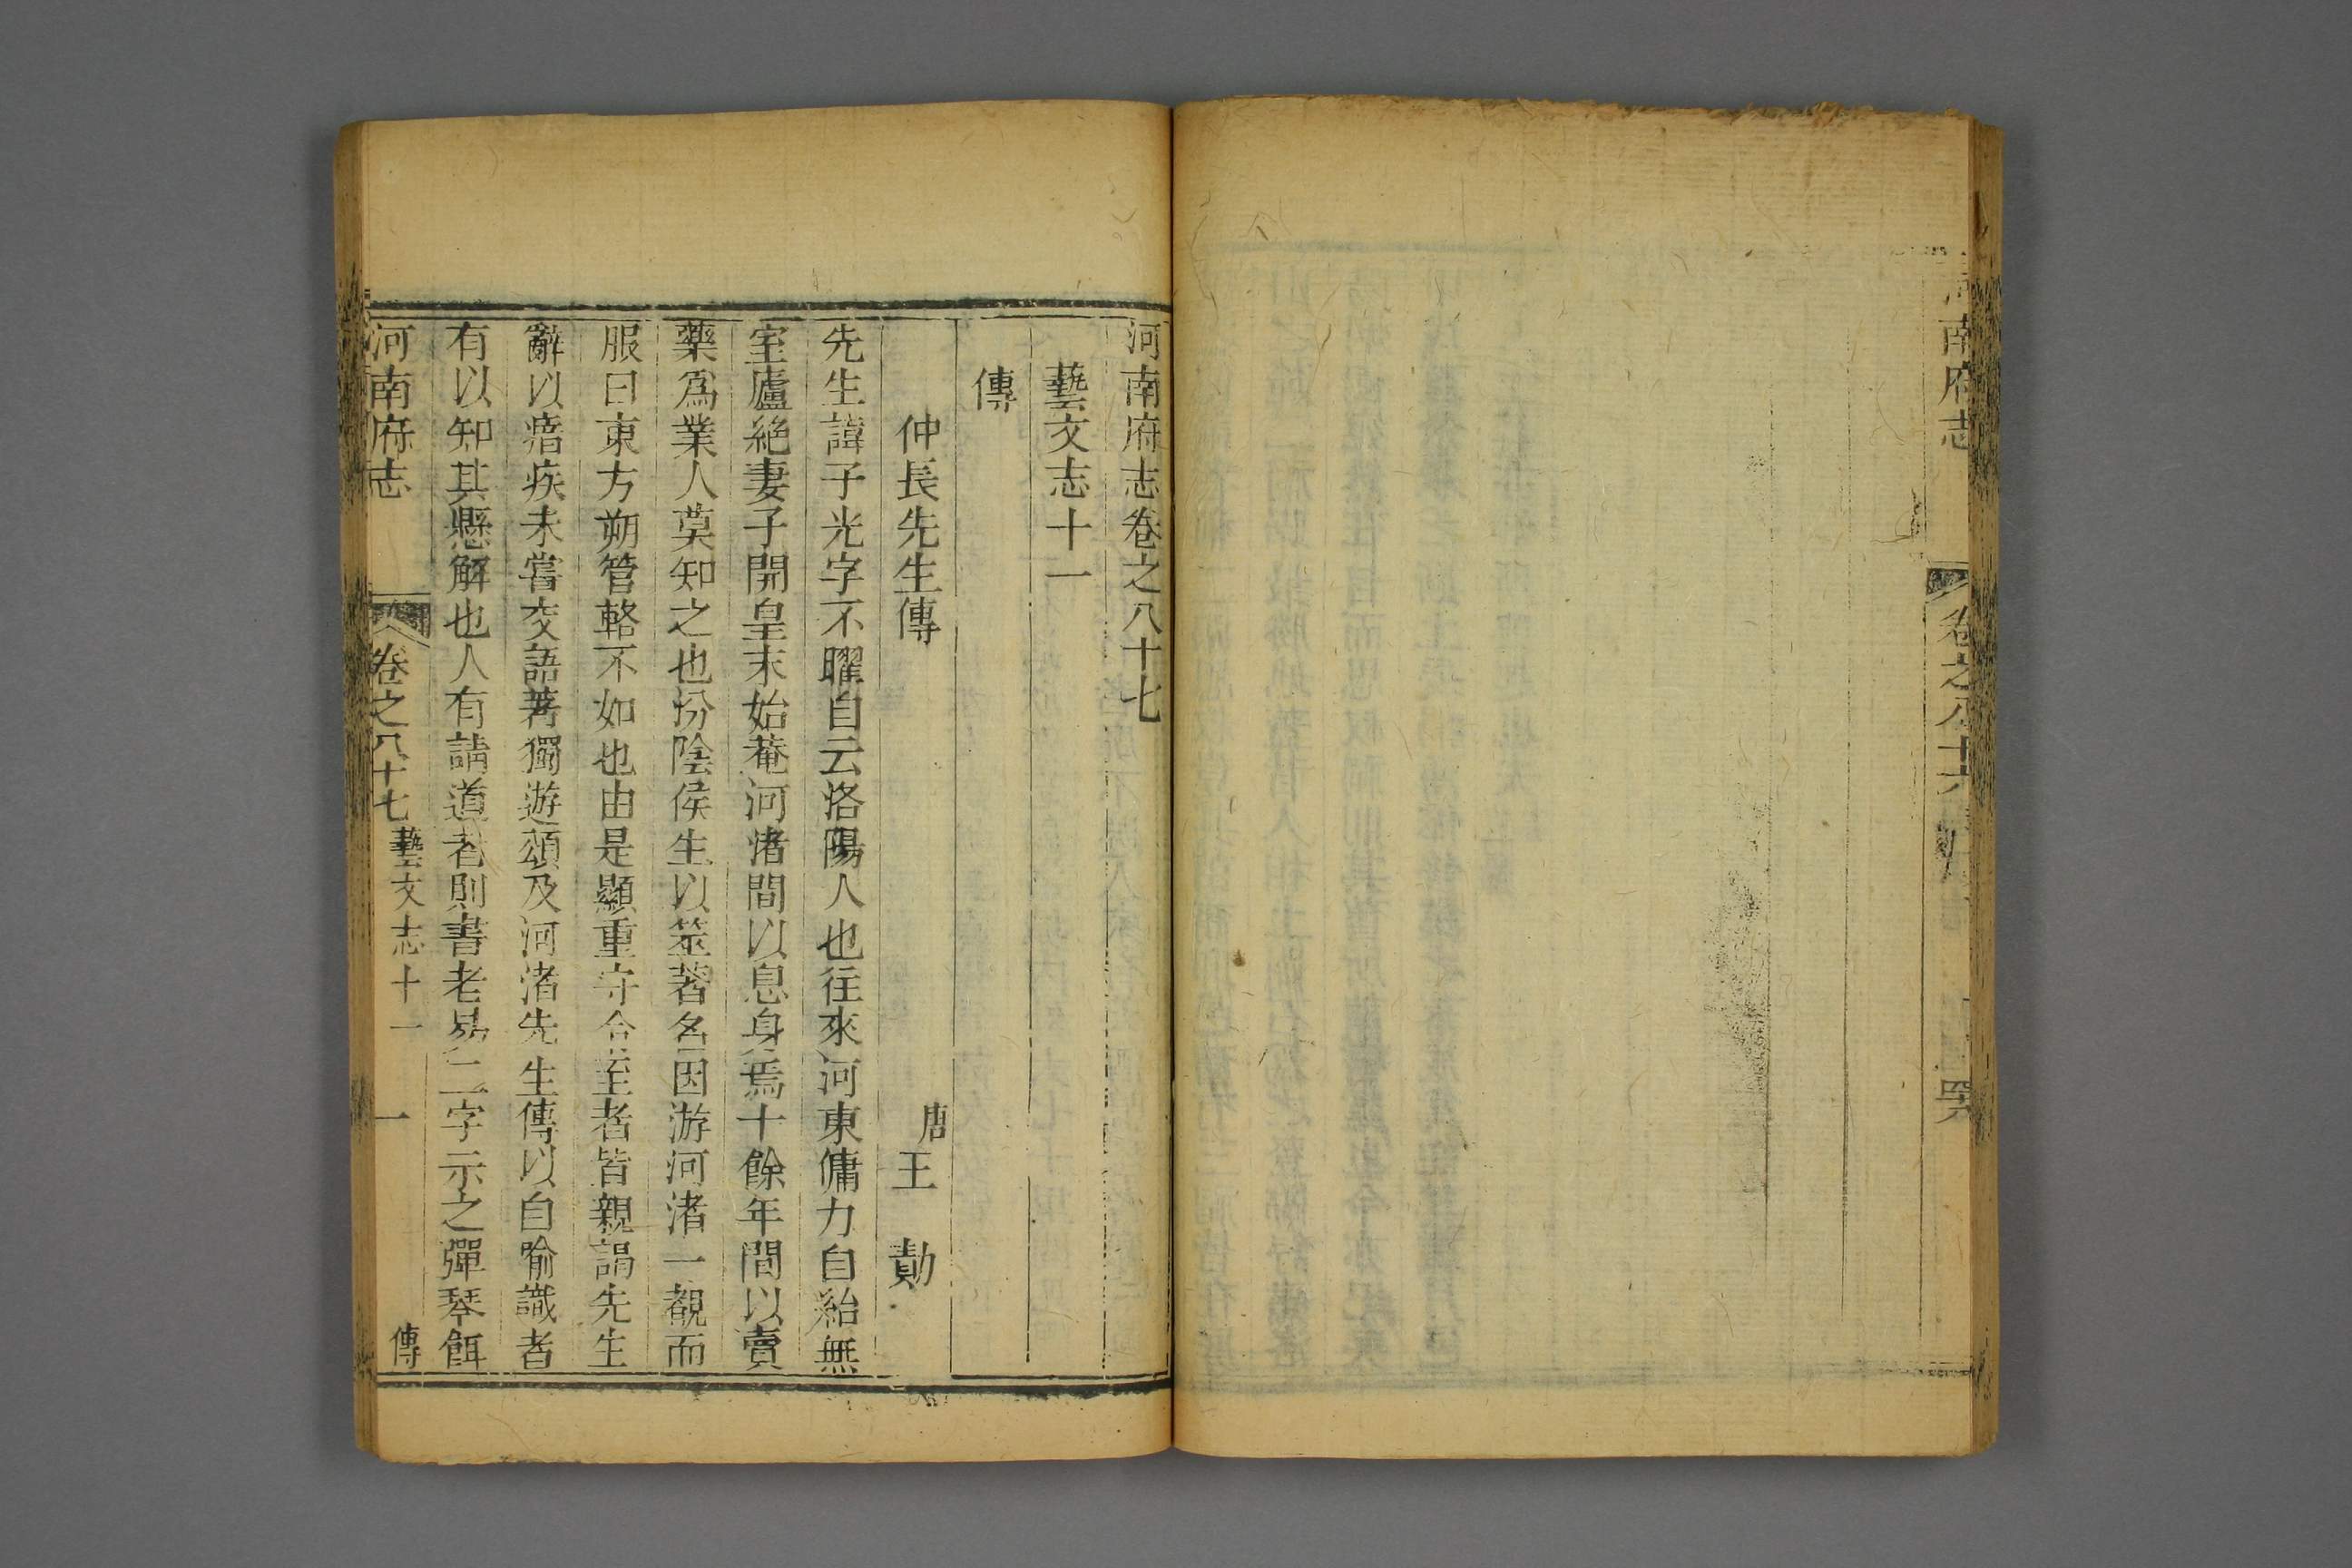 南府志
卷之八十六
河南府志卷之八十七
藝文志十一
傳
仲長先生傳
唐王勣
先生諱子光字不曜自云洛陽人也往來河東傭力自紿無
室廬絶妻子開皇末始菴河渚間以息身焉十餘年間以賣
藥爲業人莫知之也汾陰侯生以筮著名因游河渚一覩而
服曰東方朔管輅不如也由是顯重守令至者皆親謁先生
辭以瘖疾未嘗交語著獨遊頌及河渚先生傳以自喻識者
有以知其懸解也人有請道者則書老易二字示之彈琴餌
河南府志
卷之八十七
藝文志十一
一
傳